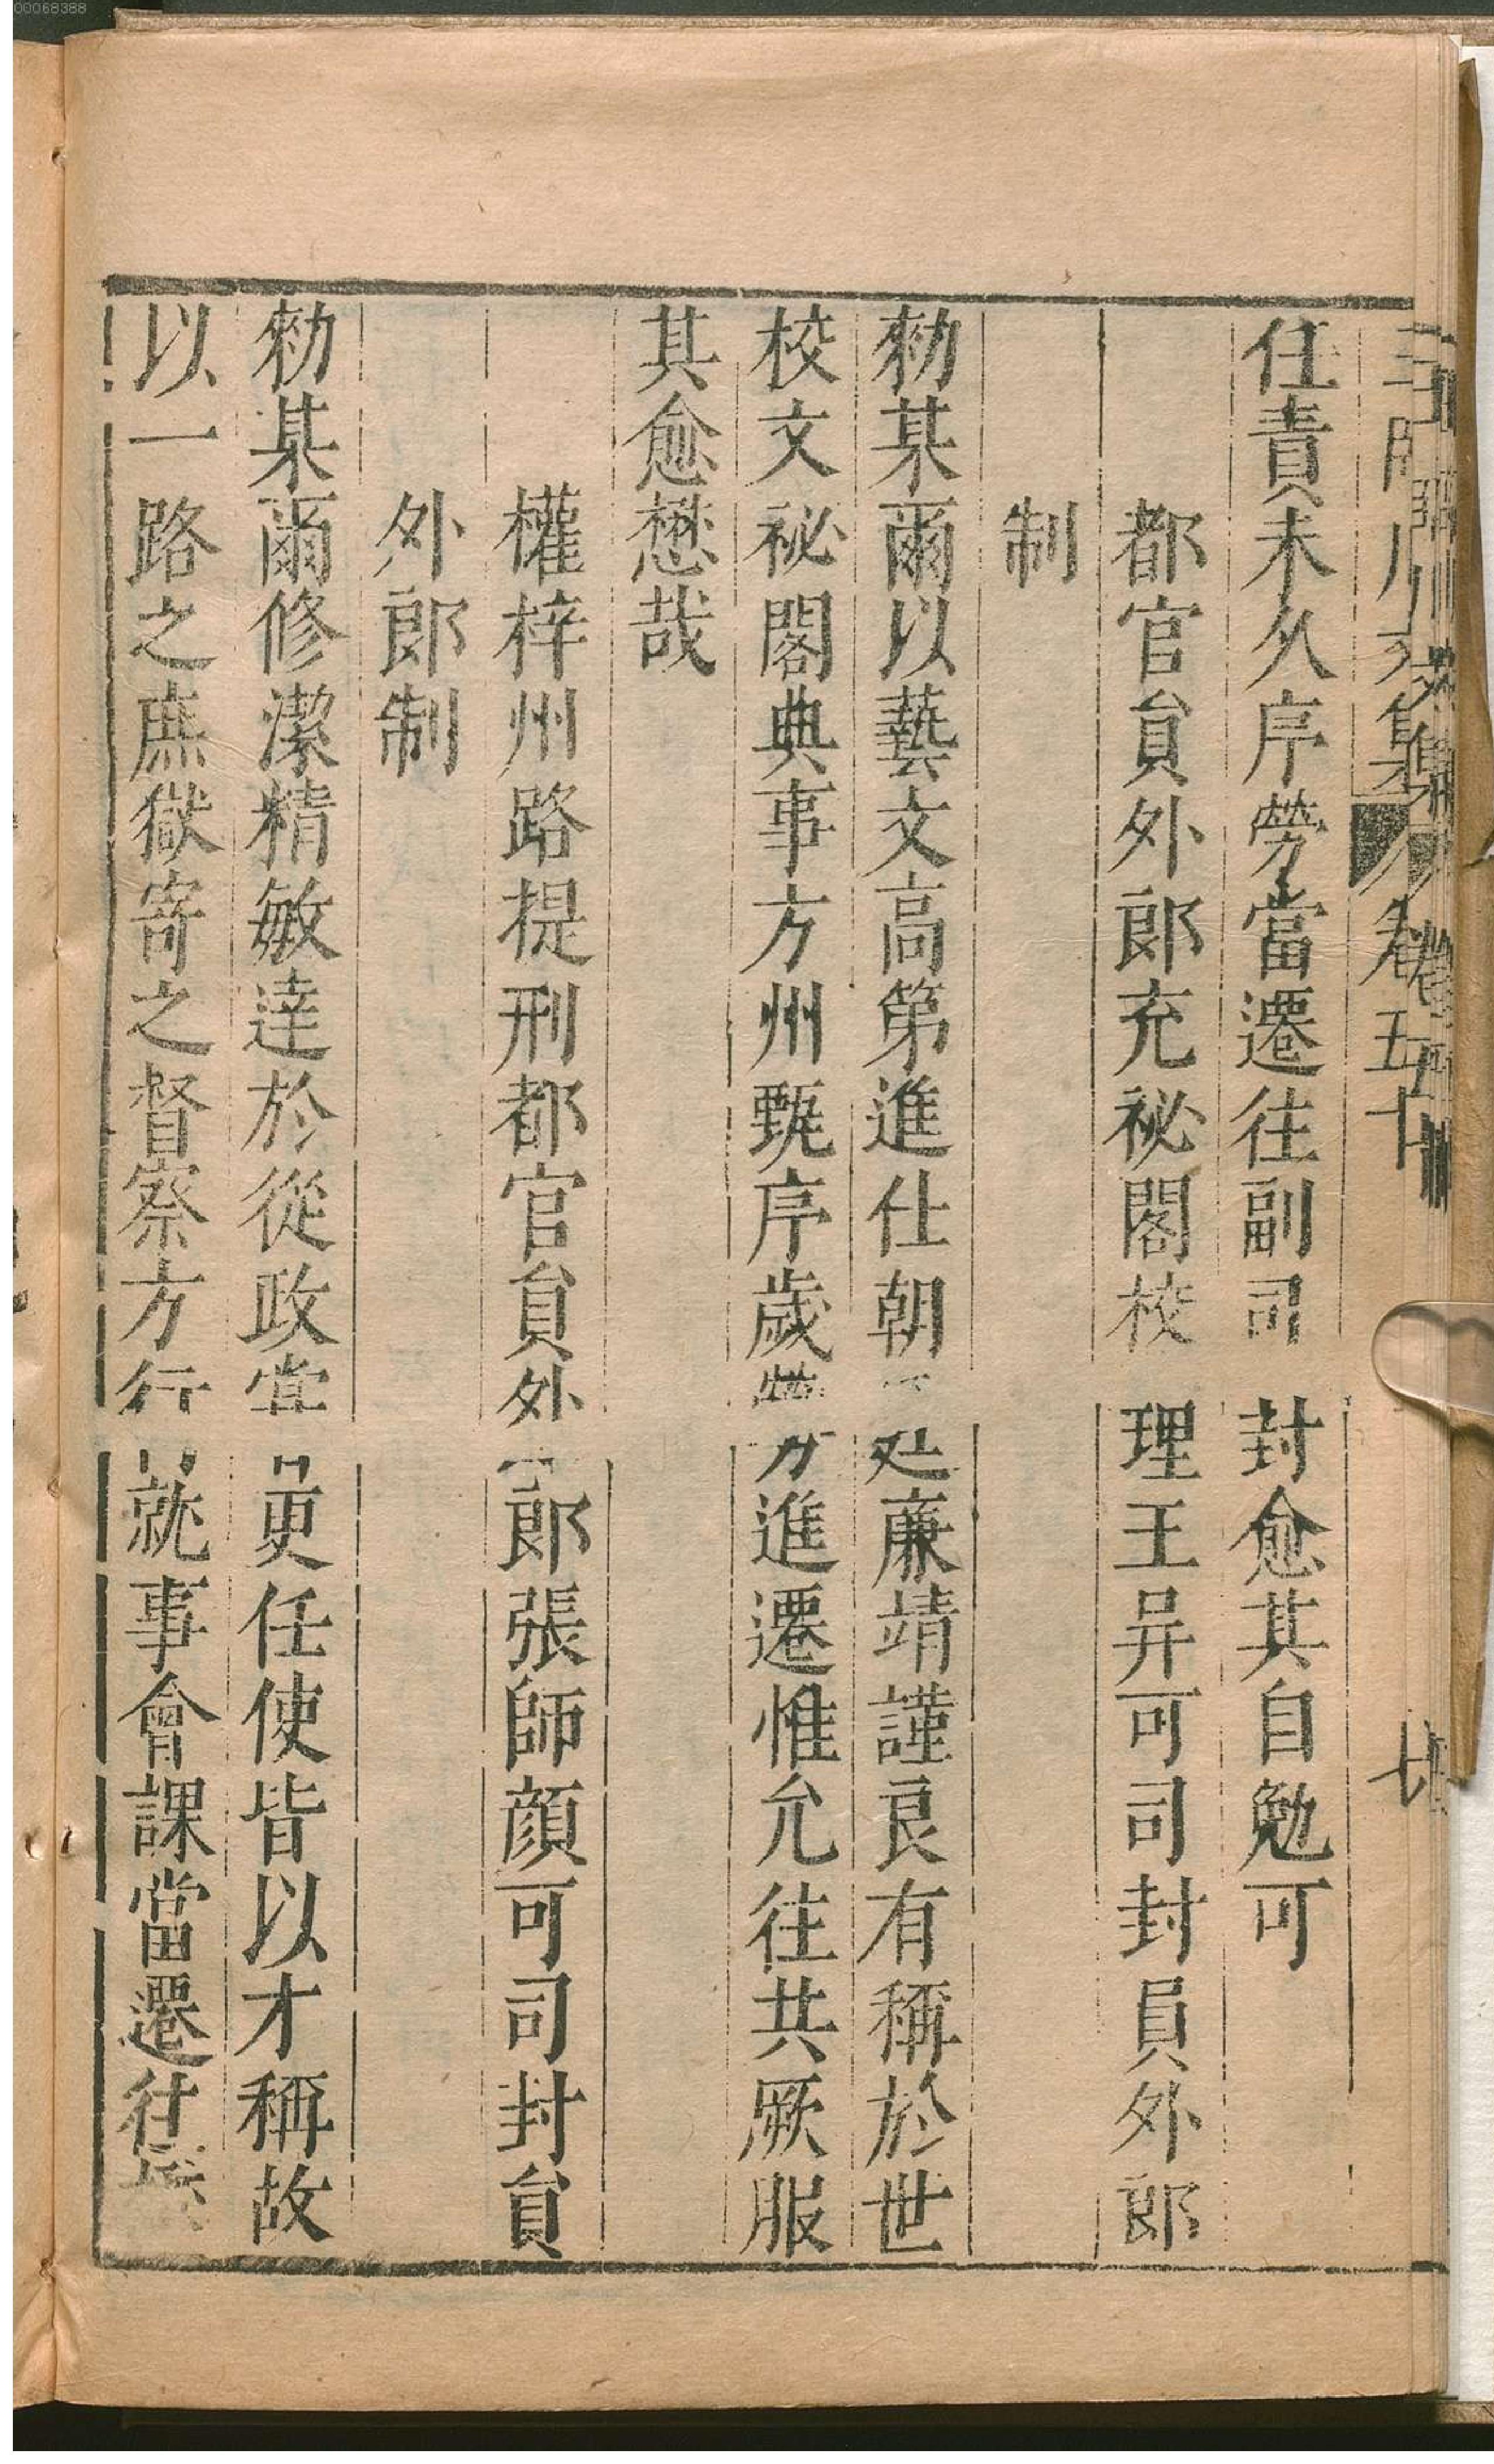 00068388
王臨川文集 卷五十 廿
任責未久序勞當遷往副司封愈其自勉可
都官員外郎充祕閣校理王异可司封員外郎
制
勑某爾以藝文高第進仕朝廷廉靖謹良有稱於世
校文祕閣典事方州甄序歲勞進遷惟允往共厥服
其愈懋哉
權梓州路提刑都官員外郎張師顏可司封員
外郎制
勑某爾修潔精敏達於從政當更任使皆以才稱故
以一路之庶獄寄之督察方行就事會課當遷往